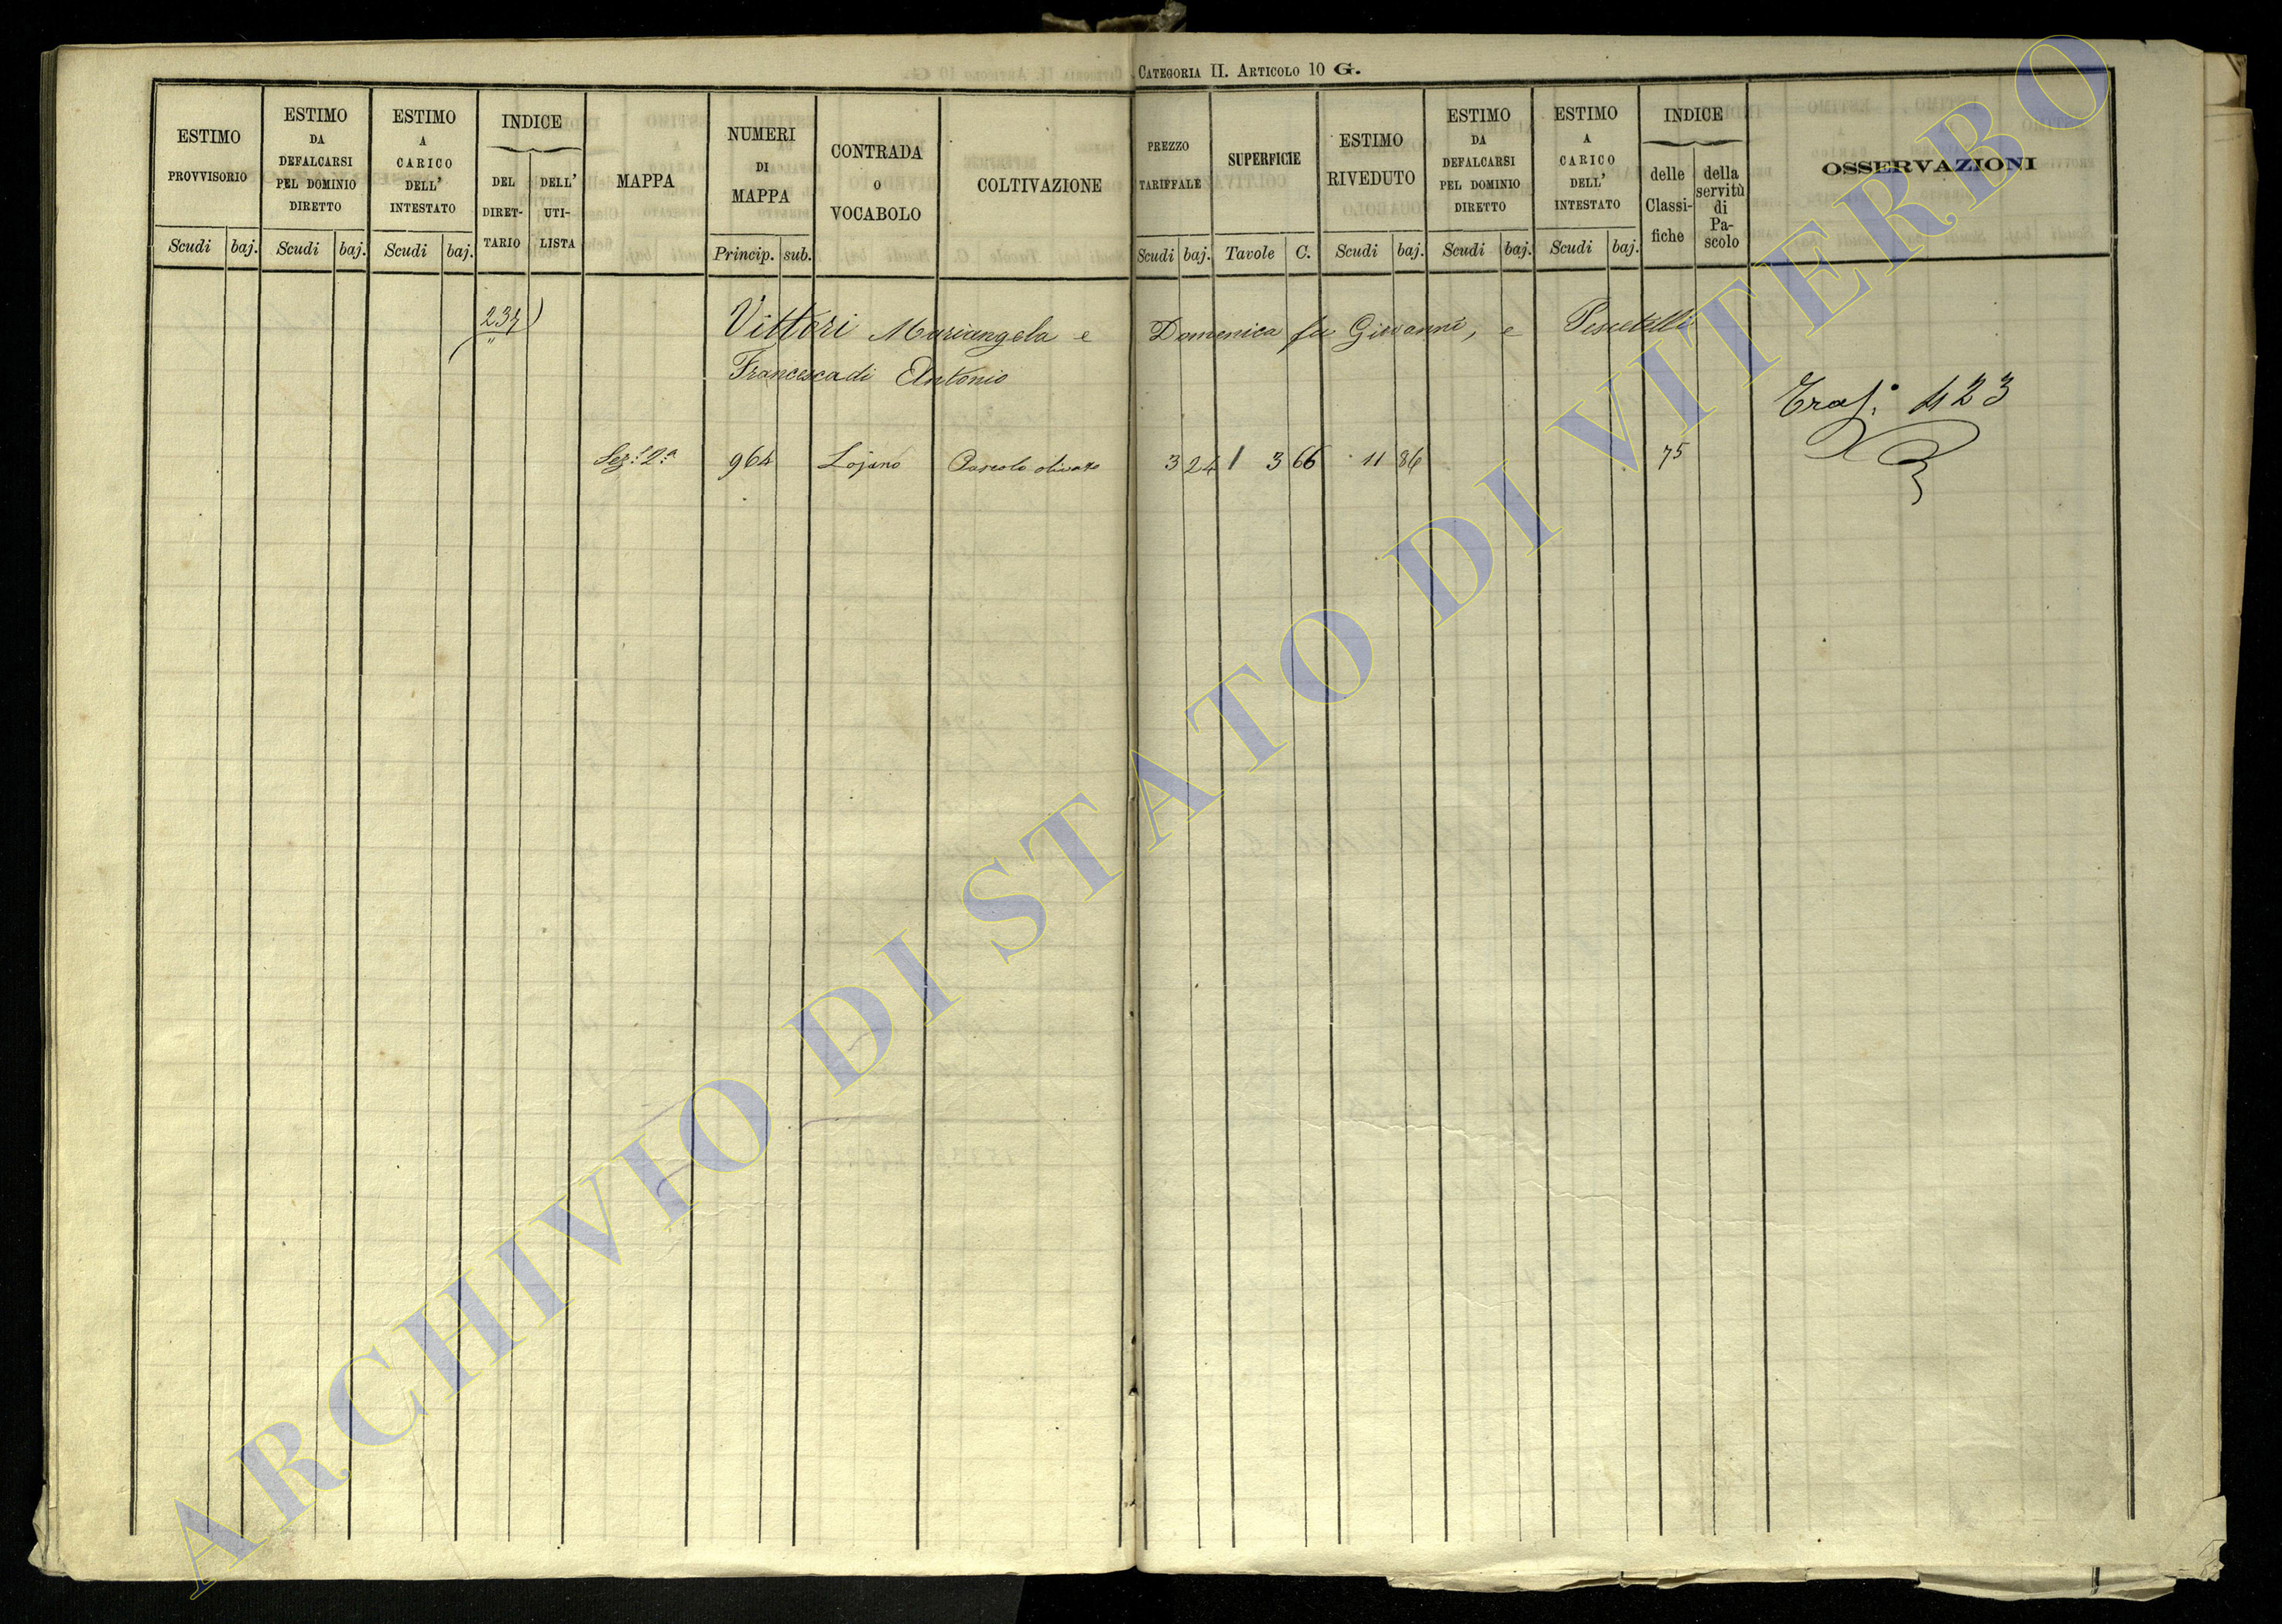 CATEGORIA II. ARTICOLO 10 G.
ESTIMO PROVVISORIO
Scudi baj.
ESTIMO DA DEFALCARSI PEL DOMINIO DIRETTO
Scudi baj.
ESTIMO A CARICO DELL' INTESTATO
Scudi baj.
INDICE
DEL DIRET-TARIO
DELL' UTI-LISTA
MAPPA
NUMERI DI MAPPA
Princip. sub.
CONTRADA O VOCABOLO
COLTIVAZIONE
PREZZO TARIFFALE
Scudi baj.
SUPERFICIE
Tavole C.
ESTIMO RIVEDUTO
Scudi baj.
ESTIMO DA DEFALCARSI PEL DOMINIO DIRETTO
Scudi baj.
ESTIMO A CARICO DELL' INTESTATO
Scudi baj.
INDICE
delle Classi-fiche
della servitù di Pa-scolo
OSSERVAZIONI
Vittori Mariangela e Domenica fu Giovanni, e Pescetelli
Francesca di Antonio
Traf: 423
Sez: 2a 964 Lojano Pascolo olivato 3 24 1 3 66 11 86 75
ARCHIVIO DI STATO DI VITERBO